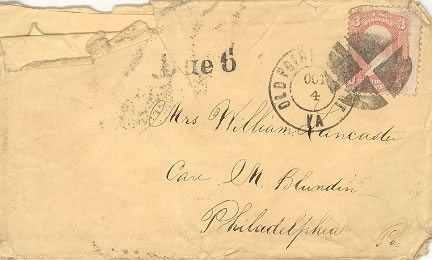 Due 6
3 3
OLD POINT
OCT
4
VA
Mrs William Lancaster
Care M Blundin
Philadelphia
Pa.